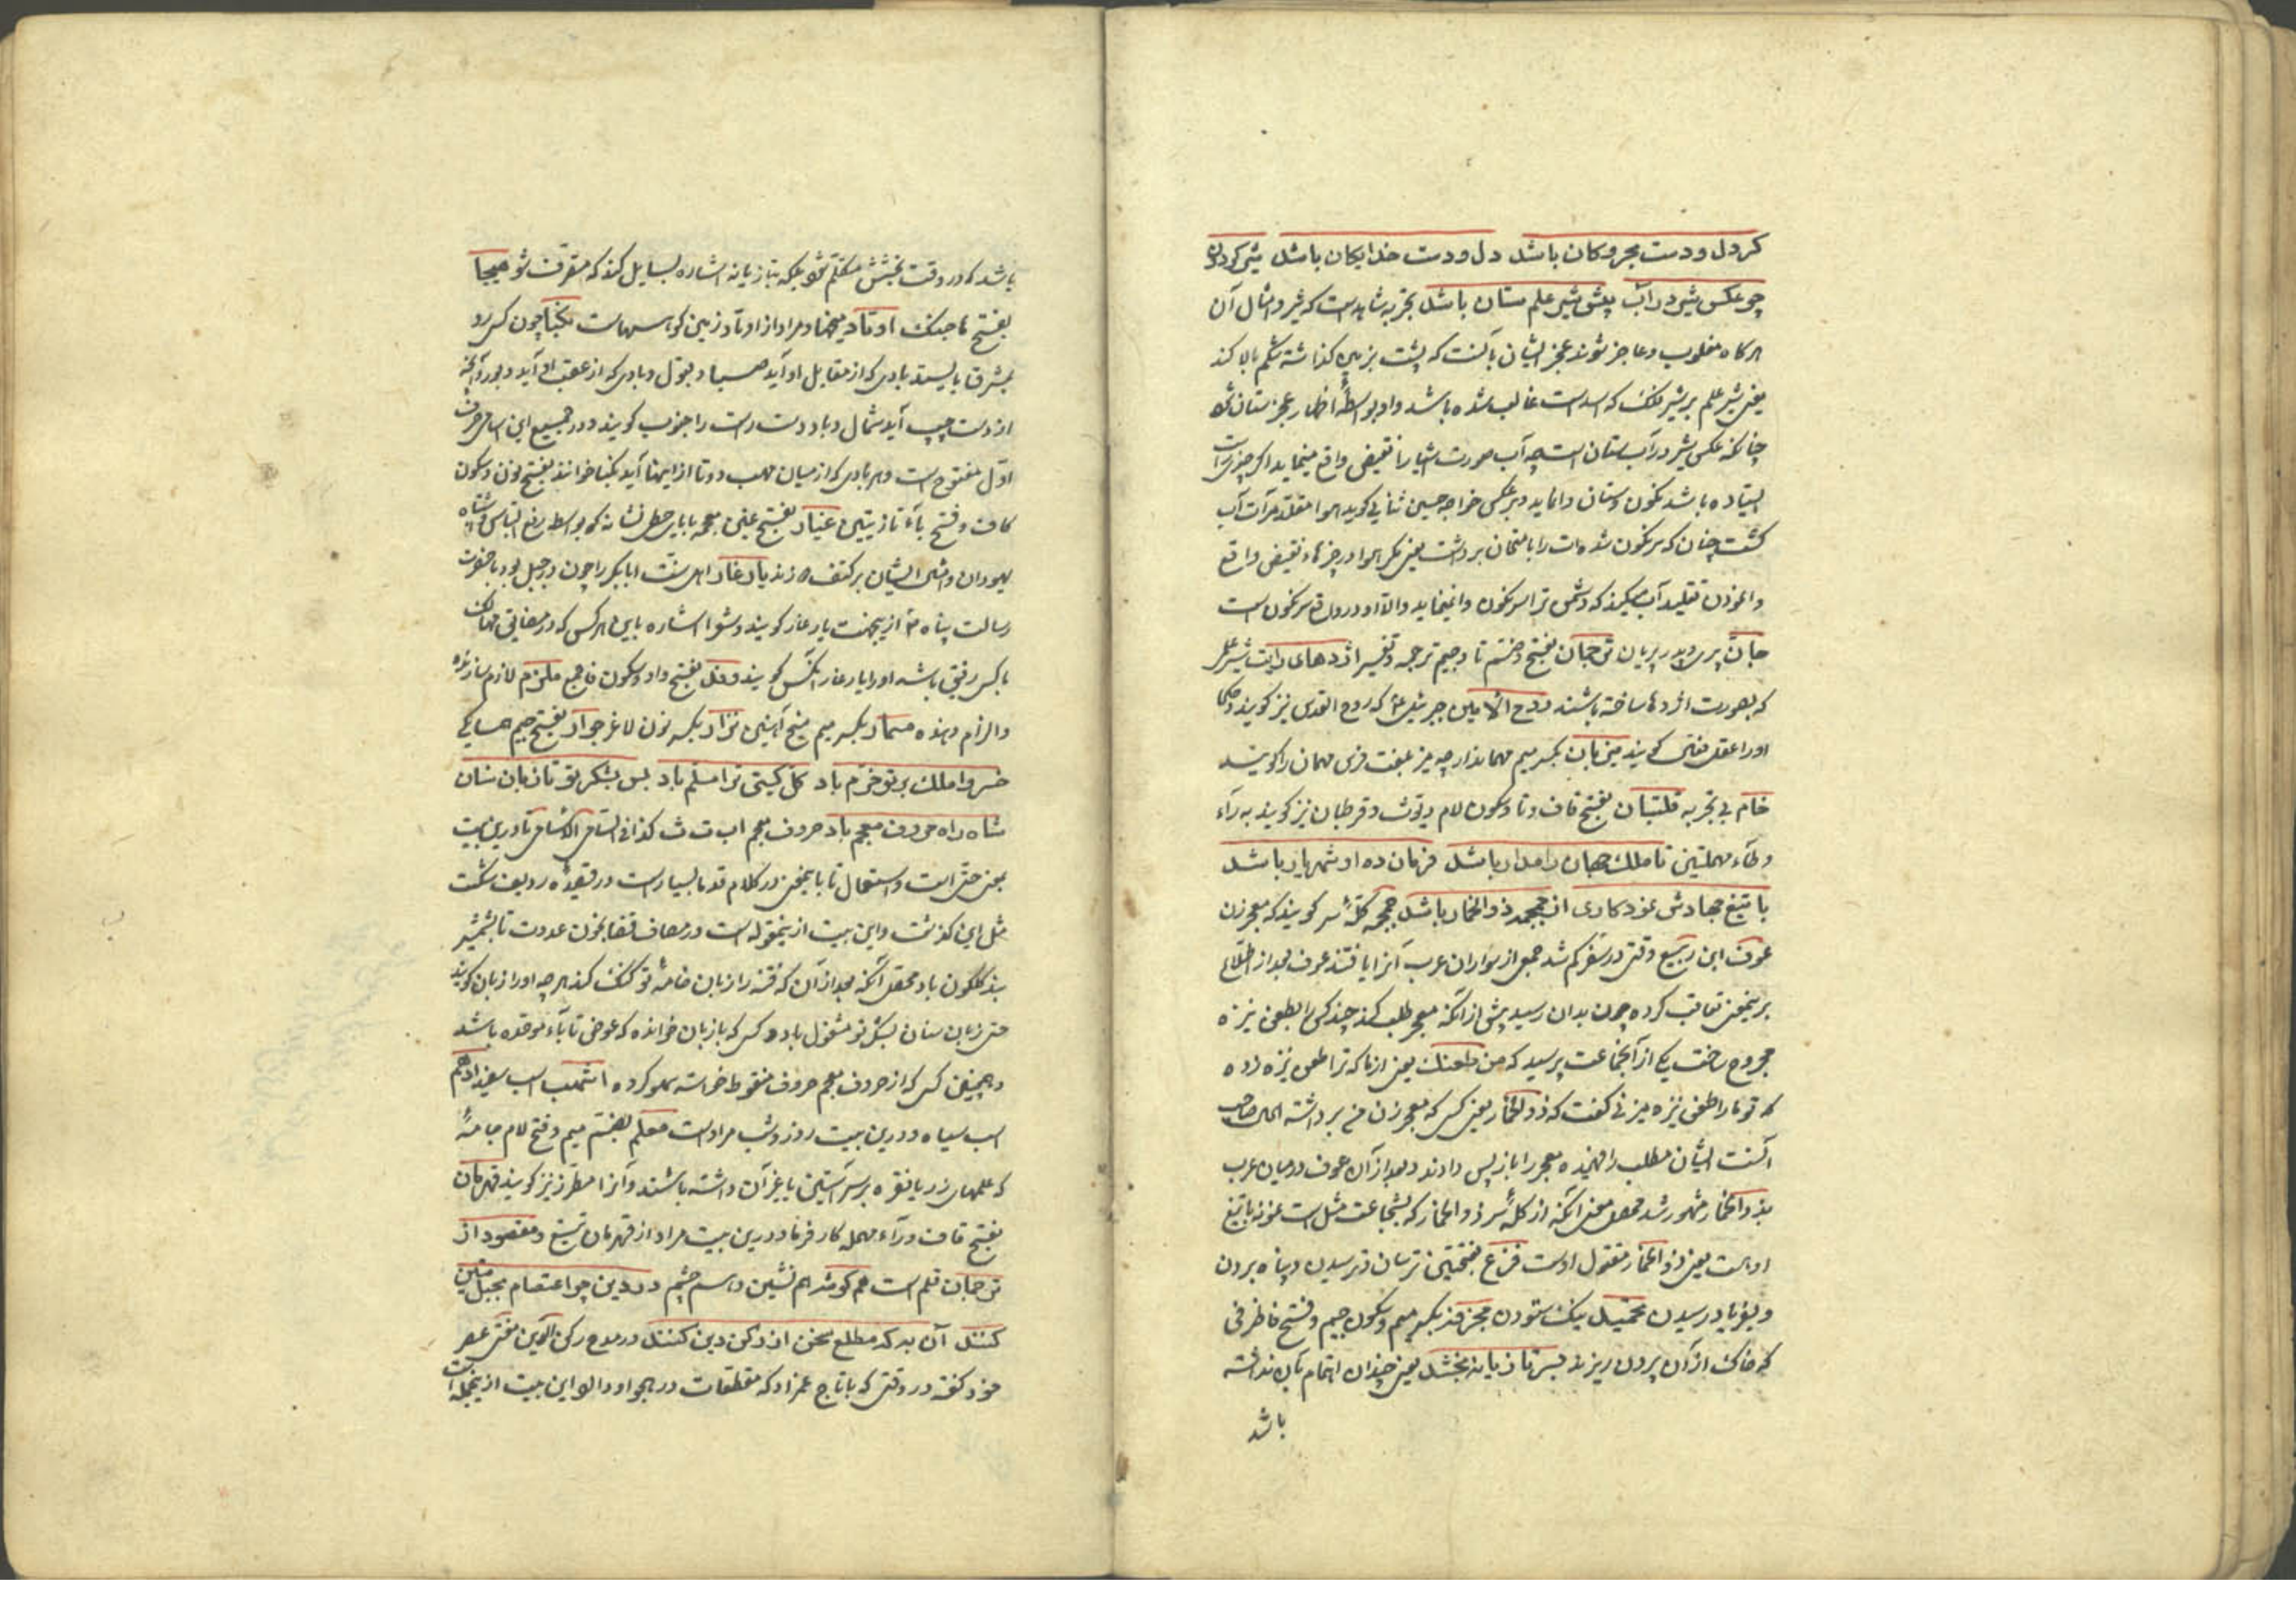 کر دل و دست بحر و کان باشد دل و دست خدایکان باشد شیر کردون
چو عکس شیر در آب پیش شیر علم ستان باشد بتجربه شاید است که شیر و امثال آن
هر کاه مغلوب و عاجز شوند عجز ایشان بآنست که پشت بزمین کذاشته شکم بالا کند
یعنی شیر علم بر شیر فلک که اسد است غالب شده باشد و او بواسطهٔ اظهار عجز ستان شو
چنانکه عکس شیر در آب ستان است چه آب صورت اشیا را نقیض واقع مینماید اکر چیزی راست
ایستاده باشد نکون و ستان وانماید و برعکس خواجه حسین ثنایی کوید هوا مقلد مرآت آب
کشت چنان که سرنکون شده ات را بامتحان برداشت یعنی مکر هوا در چیزها نقیض واقع
وانمودن تقلید آب میکند که دشمن ترا سرنکون وانمیخاید والا او در واقع سرنکون است
جان پری و پدر پریان ترجمان بفتح و ضم تا و جیم ترجمه و تفسیر اژدهای رایت شیر علم
که بصورت اژدها ساخته باشند روح الامین جبرئیل ع که روح القدس نیز کویند و حکما
او را عقل فعال کویند میزبان بکسر میم مهماندار چه میز بلغت فرس مهمان را کویند
خام بی تجربه قلتبان بفتح قاف و تا و سکون لام دیوث و قرطبان نیز کویند به رآء
و طآء مهملتین تا ملک جهان را مدار باشد فرمان ده او شهریار باشد
با تیغ جهادش نمود کاری از جمجمه ذو الخمار باشد جمجمه کلهٔ سر کویند که معجر زن
عوف ابن ربیع وقتی در سفر کم شد جمعی از سواران عرب آنرا یافتند عوف بعد از اطلاع
برینمعنی تعاقب کرده چون بدان رسید پیش از آنکه معجر طلب کند چند کس را بطعن نیزه
مجروح ساخت یکی از آنجماعت پرسید که من طعنک یعنی از ما که ترا طعن نیزه زده
که تو ما را طعن نیزه میزنی کفت که ذو الخمار یعنی کسی که معجر زن من برداشته اهل صاحب
آنست ایشان مطلب را فهمیده معجر را باز پس دادند و بعد از آن عوف در میان عرب
بذو الخمار مشهور شد محصل معنی آنکه از کلهٔ سر ذو الخمار که بشجاعت مثل است نمونه با تیغ
اوست یعنی ذو الخمار مقتول اوست فزع بفتحتین ترسان و ترسیدن و پناه بردن
و بفریاد رسیدن تحمید نیک ستودن مجرفه بکسر میم و سکون جیم و فتح فا ظرفی
که خاک از آن بیرون ریزند بسر تازیانه بخشد یعنی چندان اهتمام بآن نداشته
باشد
باشد که در وقت بخشش متکلم شو بلکه بتازیانه اشاره بسایل کند که متصرف شو هیجا
بفتح ها جنک اوتاد میخها و مراد از اوتاد زمین کوهسارهاست نکبا چون کسی رو
بمشرق بایستد بادی که از مقابل او آید صبا و قبول و بادی که از عقب او آید دبور و آنچه
از دست چپ آید شمال و باد دست راست را جنوب کویند و در جمیع این اسامی حرف
اول مفتوح است و هر بادی که از میان مهب دو تا از اینها آید نکبا خوانند بفتح نون و سکون
کاف و فتح بآء تازیتین غیار بفتح غین معجمه بابا خطی نشانه که بواسطه رفع التباس و اشتباه
یهودان و امثال ایشان بر کتف زنند یار غار اهل سنت ابابکر را چون در جبل بود با حضرت
رسالت پناه ع از ینجهت یار غار کویند و شعرا اشاره باین هر کس که در مضایق مهالک
با کسی رفیق باشد او را یار غار آنکس کویند وفد بفتح واو و سکون فا جمع ملزم لازم سازنده
و الزام دهنده مسمار بکسر میم میخ آهنین نزار بکسر نون لاغر جوار بفتح جیم همسایکی
خسروا ملک بر تو خرم باد کل کیتی ترا مسلم باد پس بشکر تو تا زبان سنان
شاه راه حروف معجم باد حروف معجم اب ت ث کذا فی السامی الاسامی تا درین بیت
بمعنی حتی است و استعمال تا باینمعنی در کلام قدما بسیار است در قصیدهٔ ردیف شکست
مثل این کذشت و این بیت از ینمقوله است در مصاف قضا بخون عدوت تا بشمشیر
بید کلکون باد محصل آنکه بعد از آن که فتنه را زبان خامهٔ تو کنک کند هر چه او را زبان کویند
حتی زبان سنان بشکر تو مشغول باد و کسی که باز بان خوانده که عوض تا بآء موحده باشد
و همچنین کسی که از حروف معجم حروف منقوط خواسته سهو کرده اشهب اسب سفید ادهم
اسب سیاه و درین بیت روز و شب مراد است معلم بضم میم و فتح لام جامهٔ
که علمهای زر یا نقره بر سر آستین یا غیر آن داشته باشند و آنرا مطرز نیز کویند قهرمان
بفتح قاف و رآء مهمله کارفرما و درین بیت مراد از قهرمان تیغ و مقصود از
ترجمان قلم است هم کوشه هم نشین و هم چشم در دین چو اعتصام بحبل متین
کنند آن به که مطلع سخن از رکن دین کنند در مدح رکن الدین مفتی عصر
خود کفته در وقتی که با تاج عمزاد که مقطعات در هجو او دارد این بیت از ینجمله است